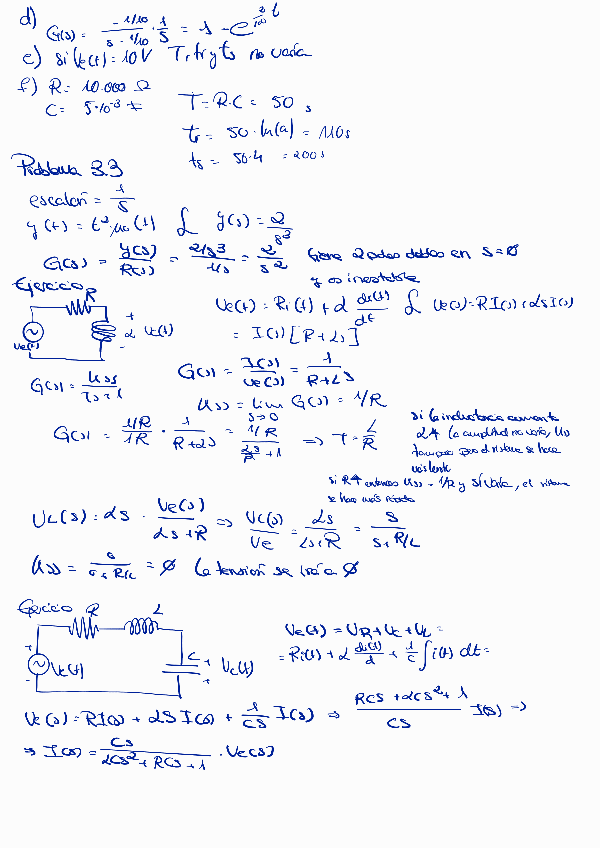 d) G(s) = \frac{-1/10}{s - 1/10} \cdot \frac{1}{s} = 1 - e^{\frac{3}{100}t}
e) si Ve(t) = 10V T, tr y ts no varía
f) R = 10.000 Ω
C = 5·10^{-3} F T = R·C = 50 s
tr = 50·ln(9) = 110s
ts = 50·4 = 200s
Problema 3.3
escalón = \frac{1}{s}
y(t) = t^2·μ_0(t) L y(s) = \frac{2}{s^3}
G(s) = \frac{y(s)}{R(s)} = \frac{2/s^3}{1/s} = \frac{2}{s^2} tiene 2 polos dobles en s=0
y es inestable
Ejercicio
R
Ve(t) + L Ve(t) -
Ve(t) = Ri(t) + L \frac{di(t)}{dt} L Ve(s) = RI(s) + LSI(s)
= I(s)[R+Ls]
G(s) = \frac{Kss}{Ts+1} G(s) = \frac{I(s)}{Ve(s)} = \frac{1}{R+Ls}
Kss = lim_{s→0} G(s) = 1/R
G(s) = \frac{1/R}{1/R} · \frac{1}{R+Ls} = \frac{1/R}{\frac{Ls}{R}+1} ⇒ T = \frac{L}{R}
si la inductancia aumenta
L↑ la amplitud no varía, Kss
tampoco pero el sistema se hace
más lento
si R↑ entonces Kss = 1/R y sí varía, el sistema
se hace más rápido
U_L(s) = Ls · \frac{Ve(s)}{Ls+R} ⇒ \frac{V_L(s)}{Ve} = \frac{Ls}{Ls+R} = \frac{s}{s+R/L}
Kss = \frac{s}{s+R/L} = 0 La tensión se iría a 0
Ejercicio R L
+ Ve(t) - C + Vc(t) +
Ve(t) = U_R + U_C + U_L =
= Ri(t) + L \frac{di(t)}{d} + \frac{1}{C} ∫ i(t) dt =
Ve(s) = RI(s) + LS I(s) + \frac{1}{CS} I(s) ⇒ \frac{RCS + LCS^2 + 1}{CS} I(s) →
⇒ I(s) = \frac{CS}{LCS^2 + RCS + 1} · Ve(s)